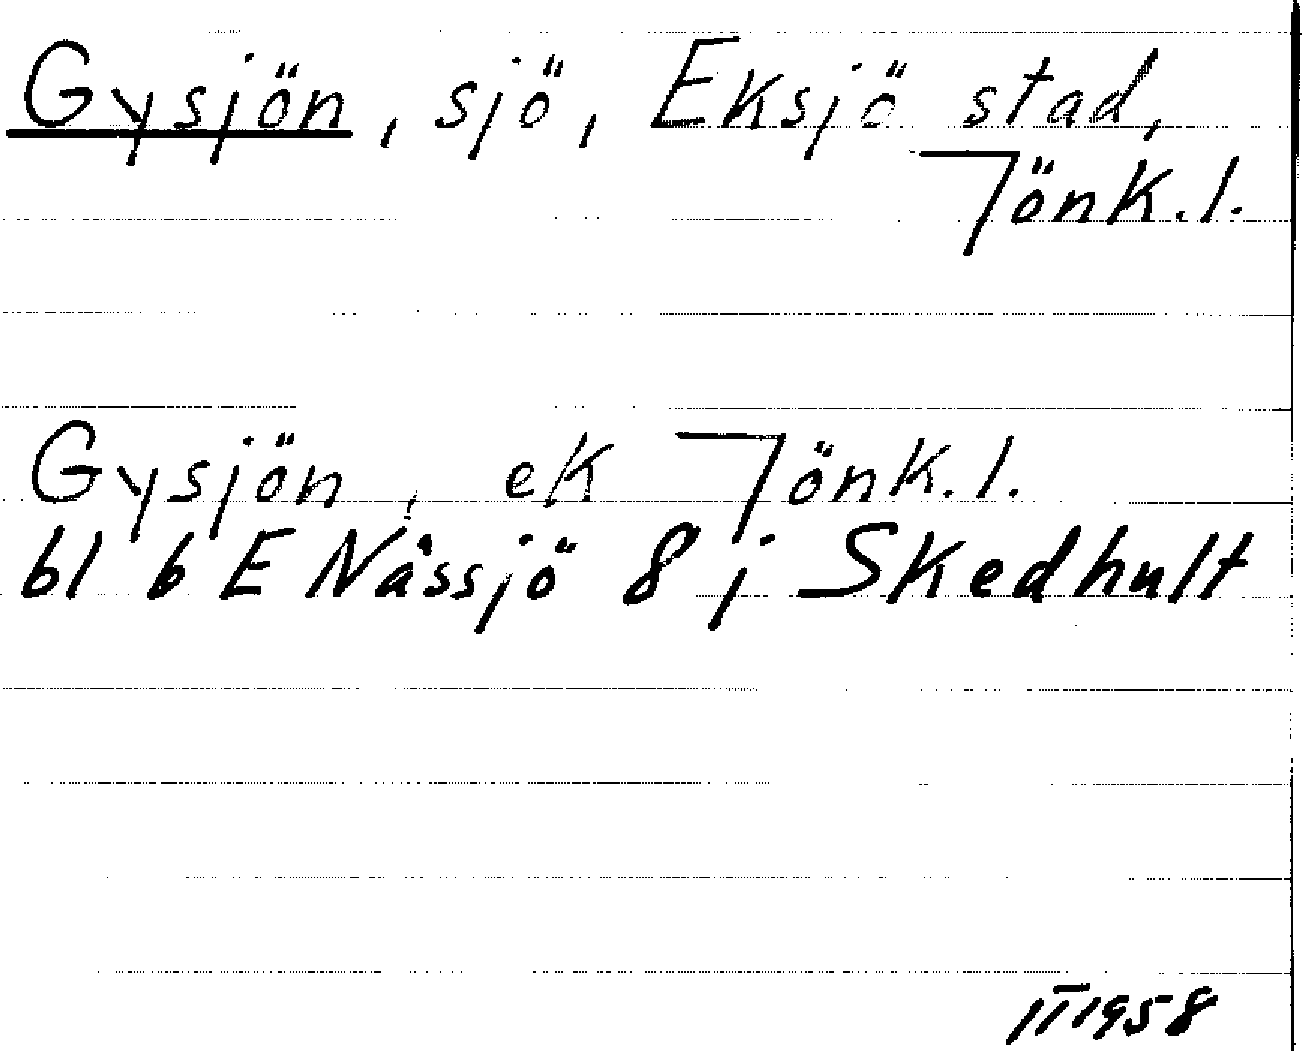 Gysjön, sjö, Eksjö stad,
Jönk.l.
Gysjön, ek Jönk.l.
bl 6 E Nässjö 8 j Skedhult
II 1958